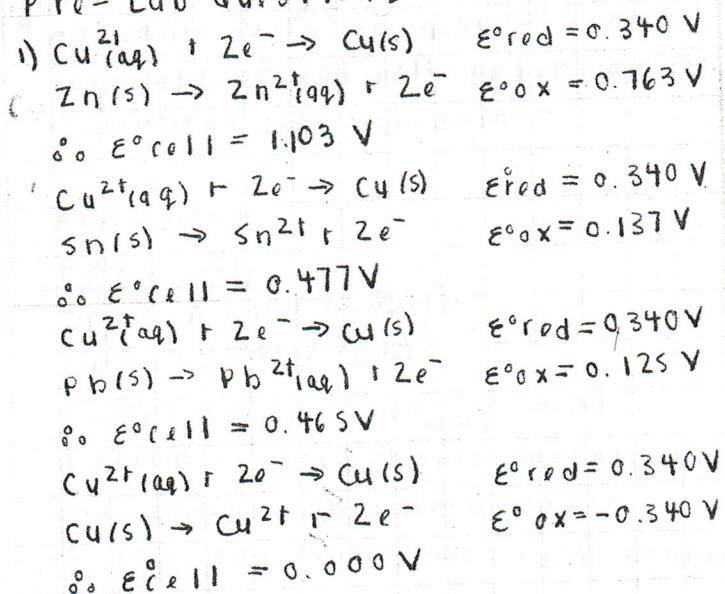 Pre-Lab
1) Cu²⁺(aq) + 2e⁻ → Cu(s) ε°red = 0.340 V
Zn(s) → Zn²⁺(aq) + 2e⁻ ε°ox = 0.763 V
∴ ε°cell = 1.103 V
Cu²⁺(aq) + 2e⁻ → Cu(s) ε°red = 0.340 V
Sn(s) → Sn²⁺ + 2e⁻ ε°ox = 0.137 V
∴ ε°cell = 0.477V
Cu²⁺(aq) + 2e⁻ → Cu(s) ε°red = 0.340V
Pb(s) → Pb²⁺(aq) + 2e⁻ ε°ox = 0.125 V
∴ ε°cell = 0.465V
Cu²⁺(aq) + 2e⁻ → Cu(s) ε°red = 0.340V
Cu(s) → Cu²⁺ + 2e⁻ ε°ox = -0.340 V
∴ ε°cell = 0.000 V